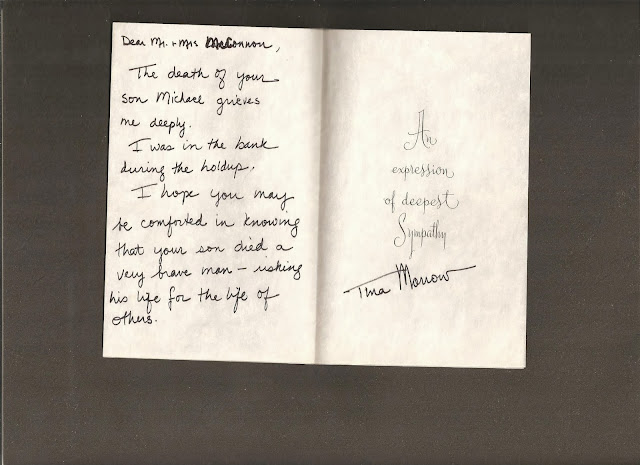 Dear Mr. + Mrs McConnon,
The death of your
son Michael grieves
me deeply.
I was in the bank
during the holdup.
I hope you may
be comforted in knowing
that your son died a
very brave man – risking
his life for the life of
others.
An
expression
of deepest
Sympathy
Tina Morrow